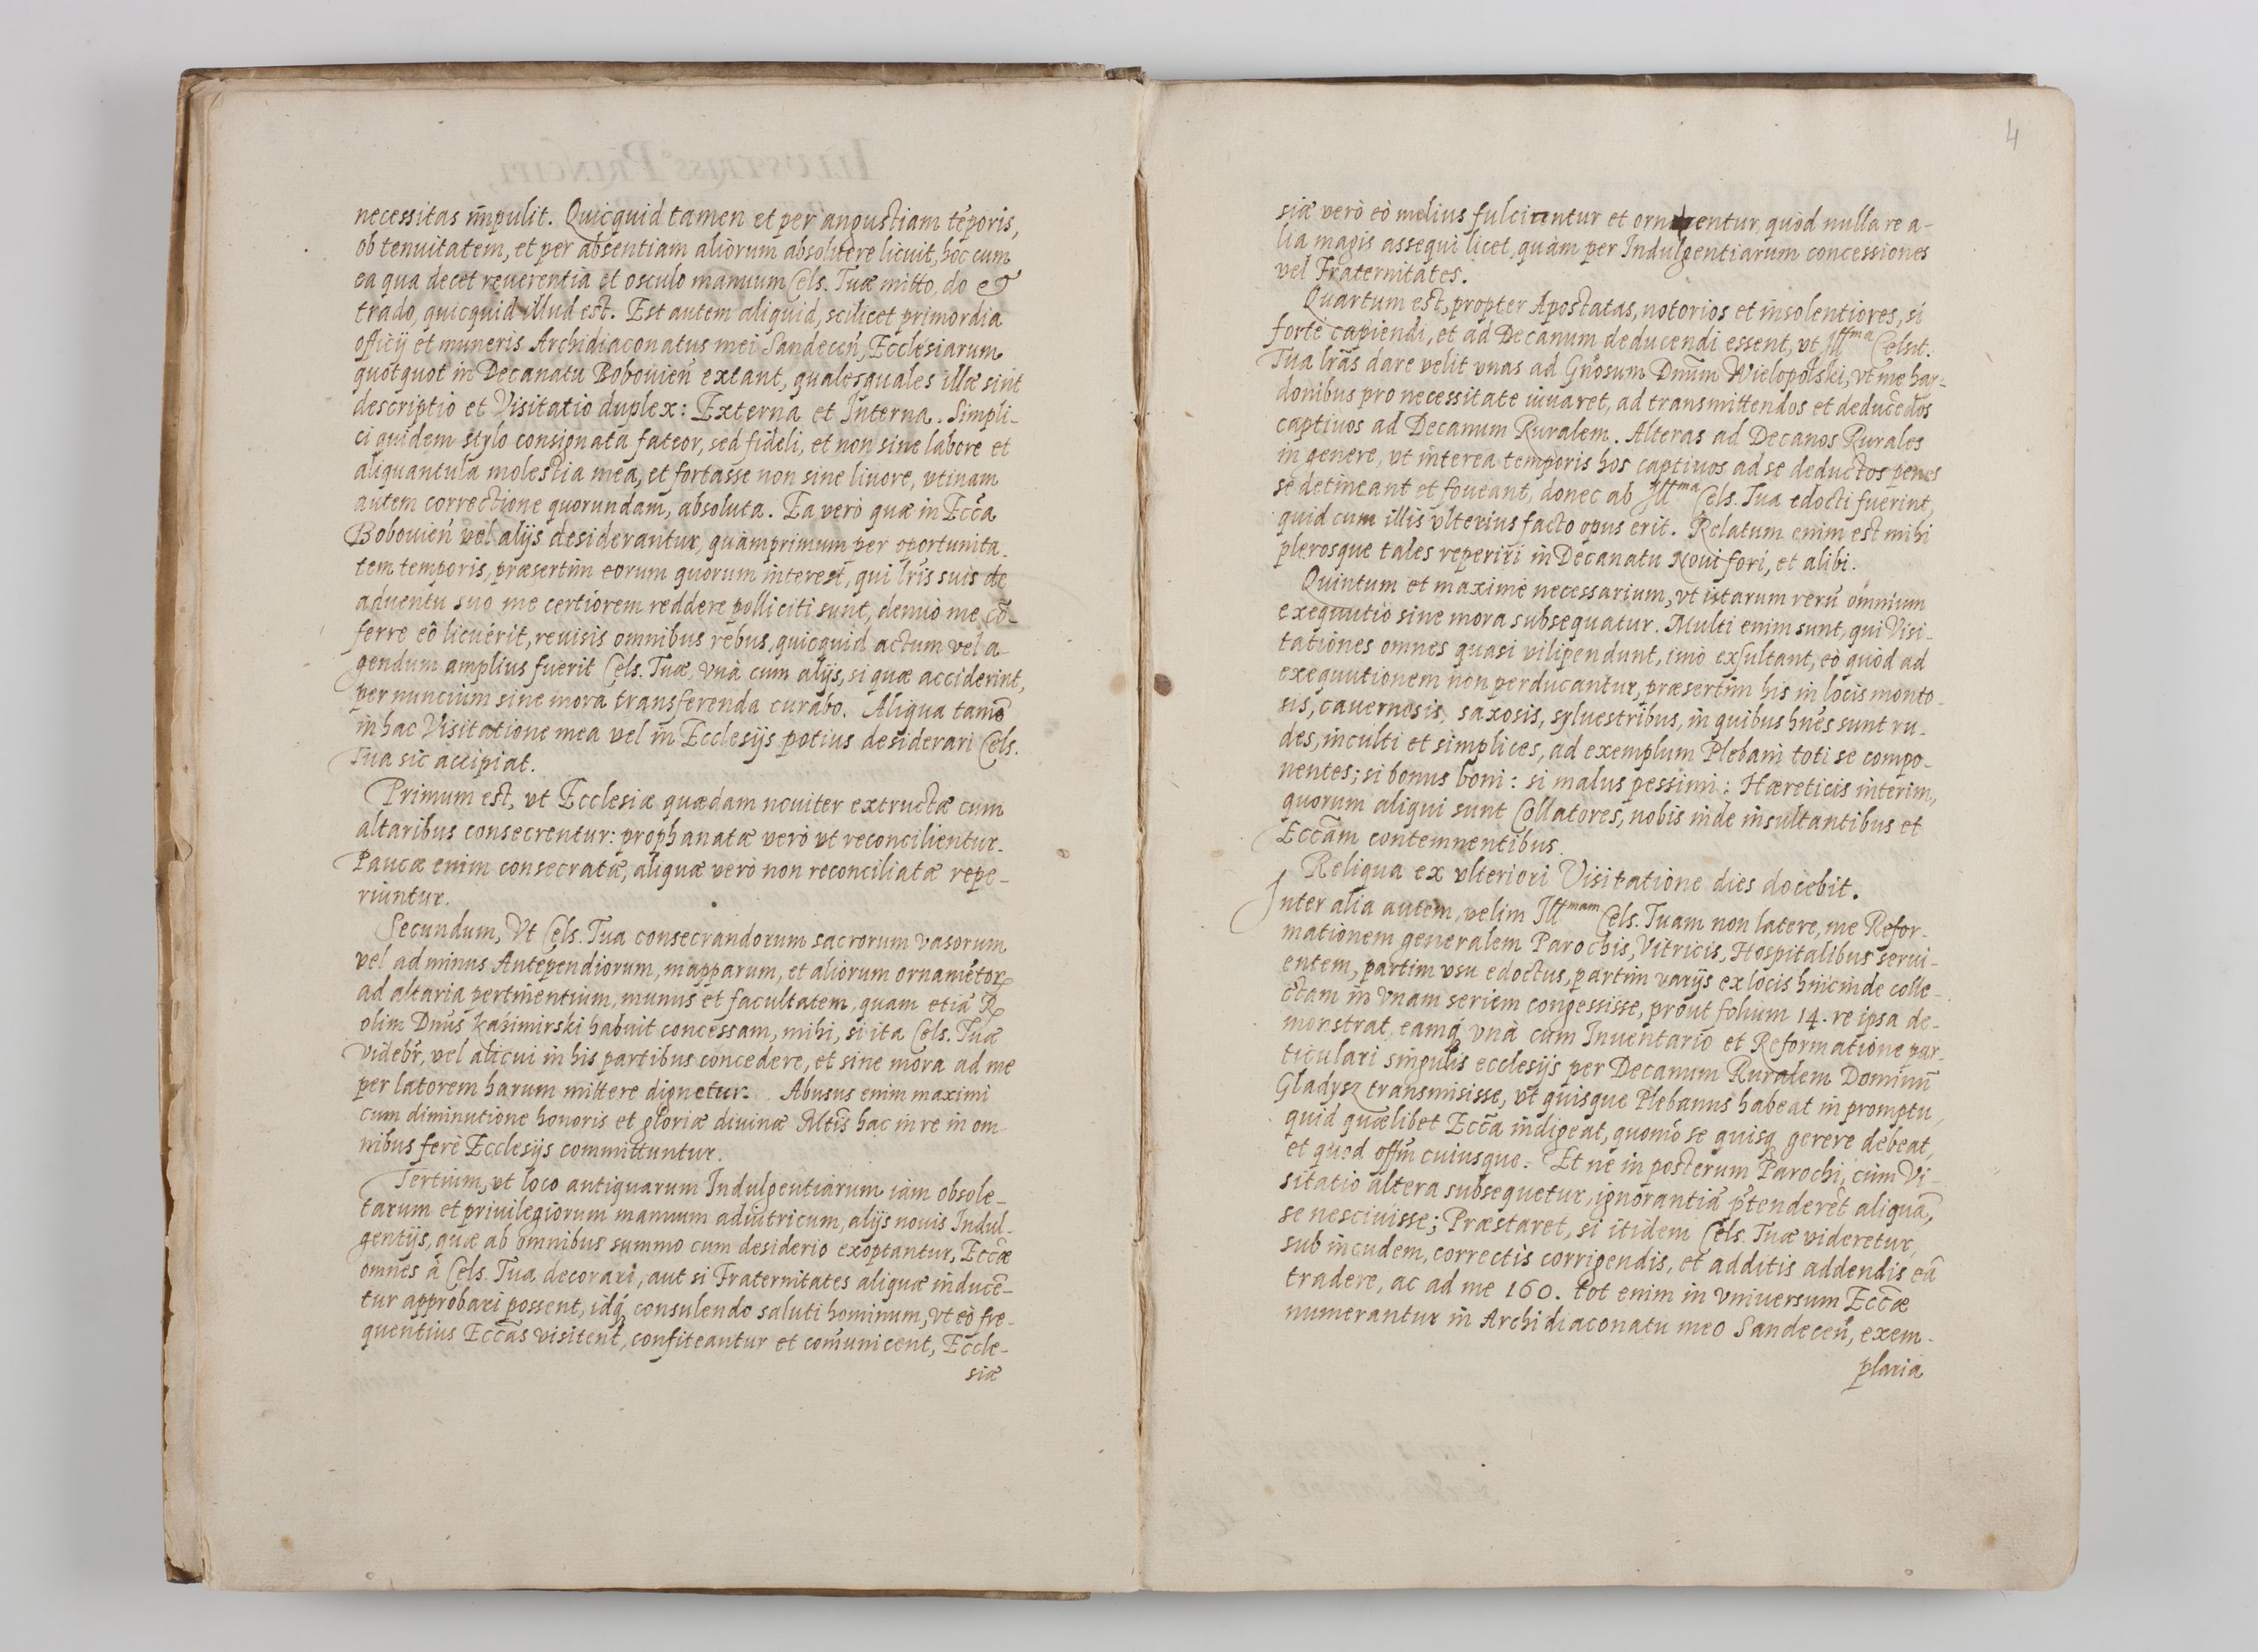 necessitas im̄pulit. Quicquid tamen et per angustiam tēporis,
ob tenuitatem, et per absentiam aliorum absoluere licuit, hoc cum
ea qua decet reuerentia et osculo manuum Cels. Tuæ mitto, do et
trado, quicquid illud est. Est autem aliquid, scilicet primordia
officij et muneris Archidiaconatus mei Sandeceń, Ecclesiarum
quotquot in Decanatu Bobouień extant, qualesquales illæ sint
descriptio et Visitatio duplex: Externa et Interna. Simpli-
ci quidem stylo consignata fateor, sed fideli, et non sine labore et
aliquantula molestia mea, et fortasse non sine liuore, vtinam
autem correctione quorundam, absoluta. Ea verò quæ in Ecc̄a
Bobouień vel alijs desiderantur, quàmprimum per oportunita-
tem temporis, præsertim eorum quorum interest, qui lr̄is suis de
aduentu suo me certiorem reddere polliciti sunt, denuò me cō-
ferre eò licuerit, reuisis omnibus rebus, quicquid actum vel a-
gendum amplius fuerit Cels. Tuæ, vnà cum alijs, si quæ acciderint,
per nuncium sine mora transferenda curabo. Aliqua tamē
in hac Visitatione mea vel in Ecclesijs potius desiderari Cels.
Tua sic accipiat.
Primum est, vt Ecclesiæ quædam nouiter extructæ cum
altaribus consecrentur: prophanatæ verò vt reconcilientur.
Paucæ enim consecratæ, aliquæ verò non reconciliatæ repe-
riuntur.
Secundum, Vt Cels. Tua consecrandorum sacrorum vasorum
vel ad minus Antependiorum, mapparum, et aliorum ornamētoꝝ
ad altaria pertinentium, munus et facultatem, quam etiā R
olim Dn̄us Kazimirski habuit concessam, mihi, si ita Cels. Tuæ
videbr̄, vel alicui in his partibus concedere, et sine mora ad me
per latorem harum mittere dignetur. Abusus enim maximi
cum diminutione honoris et gloriæ diuinæ Mtīs hac in re in om
nibus ferè Ecclesijs committuntur.
Tertium, vt loco antiquarum Indulgentiarum iàm obsole-
tarum et priuilegiorum manuum adiutricum, alijs nouis Indul-
gentijs, quæ ab omnibus summo cum desiderio exoptantur, Ecc̄æ
omnes à Cels. Tua decorari, aut si Fraternitates aliquæ inducē-
tur approbari possent, idq; consulendo saluti hominum, vt eò fre-
quentius Ecc̄as visitent, confiteantur et com̄unicent, Eccle-
siæ
4
siæ verò eò melius fulcirentur et ornarentur, quòd nulla re a-
lia magis assequi licet, quàm per Indulgentiarum concessiones
vel Fraternitates.
Quartum est, propter Apostatas, notorios et insolentiores, si
fortè capiendi, et ad Decanum deducendi essent, vt Ill^ma Celsit.
Tua lr̄as dare velit vnas ad Gn̄osum Dn̄um Wielopolski, vt me har-
donibus pro necessitate iuuaret, ad transmittendos et deducēdos
captiuos ad Decanum Ruralem. Alteras ad Decanos Rurales
in genere, vt interea temporis hos captiuos ad se deductos penes
se detineant et foueant, donec ab Ill^ma Cels. Tua edocti fuerint,
quid cum illis vlterius facto opus erit. Relatum enim est mihi
plerosque tales reperiri in Decanatu Noui fori, et alibi.
Quintum et maximè necessarium, vt istarum rerū omnium
exequutio sine mora subsequatur. Multi enim sunt, qui Visi-
tationes omnes quasi vilipendunt, imò exsultant, eò quòd ad
exequutionem non perducantur, præsertim his in locis monto-
sis, cauernosis, saxosis, syluestribus, in quibus hn̄es sunt ru-
des, inculti et simplices, ad exemplum Plebani toti se compo-
nentes; si bonus boni: si malus pessimi: Hæreticis interim,
quorum aliqui sunt Collatores, nobis inde insultantibus et
Ecc̄am contemnentibus.
Reliqua ex vlteriori Visitatione dies docebit.
Inter alia autem, velim Ill^mam Cels. Tuam non latere, me Refor-
mationem generalem Parochis, Vitricis, Hospitalibus serui-
entem, partim vsu edoctus, partim varijs ex locis hincinde colle-
ctam in vnam seriem congessisse, prout folium 14. re ipsa de-
monstrat, eamq; vnà cum Inuentario et Reformatione par-
ticulari singulis ecclesijs per Decanum Ruralem Dominū
Gladysz transmisisse, vt quisque Plebanus habeat in promptu,
quid quælibet Ecc̄a indigeat, quomō se quisq; gerere debeat,
et quod offm̄ cuiusque. Et ne in posterum Parochi, cùm Vi-
sitatio altera subsequetur, ignorantiā p̄tenderēt aliquā,
se nesciuisse; Præstaret, si itidem Cels. Tuæ videretur,
sub incudem, correctis corrigendis, et additis addendis eā
tradere, ac ad me 160. tot enim in vniuersum Ecc̄æ
numerantur in Archidiaconatu meo Sandeceń, exem-
plaria